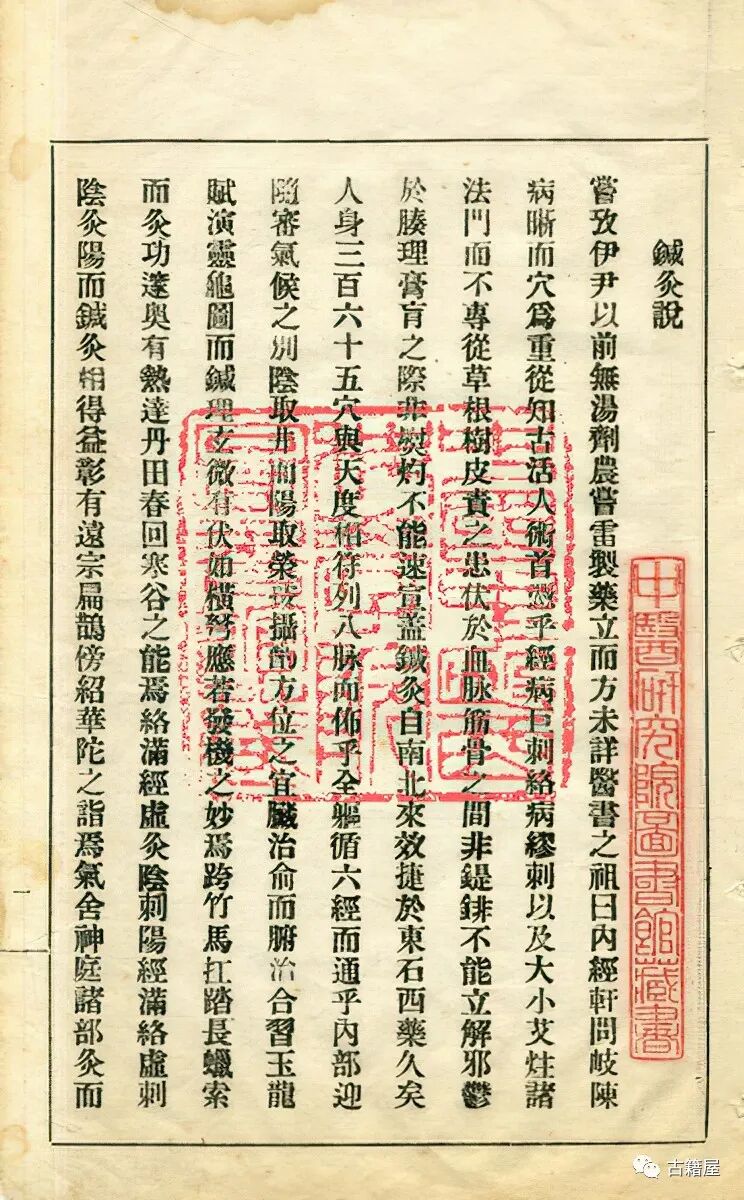 鍼灸說
嘗攷伊尹以前無湯劑農嘗雷製藥立而方未詳醫書之祖曰內經軒問岐陳
病晣而穴爲重從知古活人術首憑乎經病巨刺絡病繆刺以及大小艾炷諸
法門而不專從草根樹皮責之患伏於血脉筋骨之間非鍉鋒不能立解邪鬱
於腠理膏肓之際非熨灼不能速宣蓋鍼灸自南北來效捷於東石西藥久矣
人身三百六十五穴與天度相符列八脉而佈乎全軀循六經而通乎內部迎
隨審氣候之別陰取井而陽取榮攝方位之宜臟治俞而腑治合習玉龍
賦演靈龜圖而鍼理玄微有伏如橫弩應若發機之妙焉跨竹馬扛踏長蠟索
而灸功邃奥有熱達丹田春回寒谷之能焉絡滿經虛灸陰刺陽經滿絡虛刺
陰灸陽而鍼灸相得益彰有遠宗扁鵲傍紹華陀之詣焉氣舍神庭諸部灸而
中醫研究院圖書館藏書
古籍屋